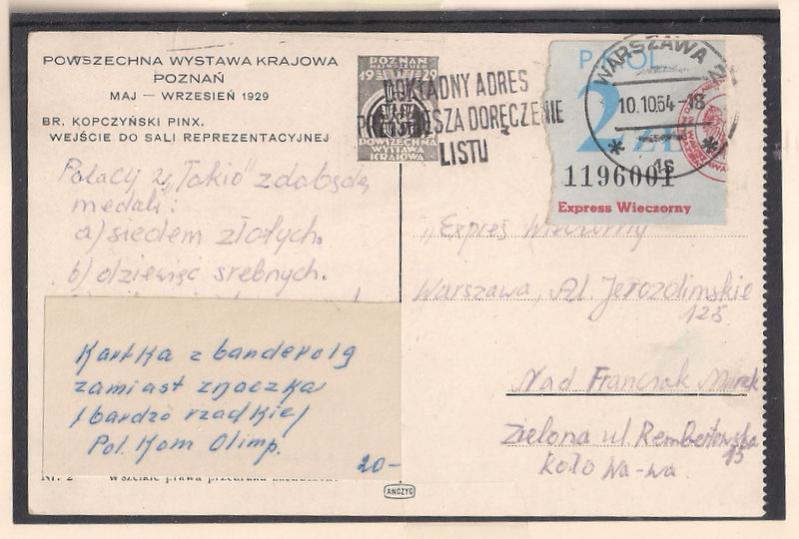 POWSZECHNA WYSTAWA KRAJOWA
POZNAŃ
MAJ — WRZESIEŃ 1929
BR. KOPCZYŃSKI PINX.
WEJŚCIE DO SALI REPREZENTACYJNEJ
POZNAŃ
1929
POWSZECHNA
WYSTAWA
KRAJOWA
DOKŁADNY ADRES
DORĘCZENIE
LISTU
WARSZAWA 2
10.10.64-18
1s
2 ZŁ
1196001
Express Wieczorny
Polacy w "Tokio" zdobędą
medali:
a) siedem złotych.
b) dziewięc srebnych.
Kartka z banderolą
zamiast znaczka
/bardzo rzadkie/
Pol. Kom Olimp.
20-
"Expres Wieczorny
Warszawa, Al. Jerozolimskie
125
Nad Franczak Marek
Zielona ul. Rembertowska
15
koło Wa-wa.
Nr. 2
ANCZYC